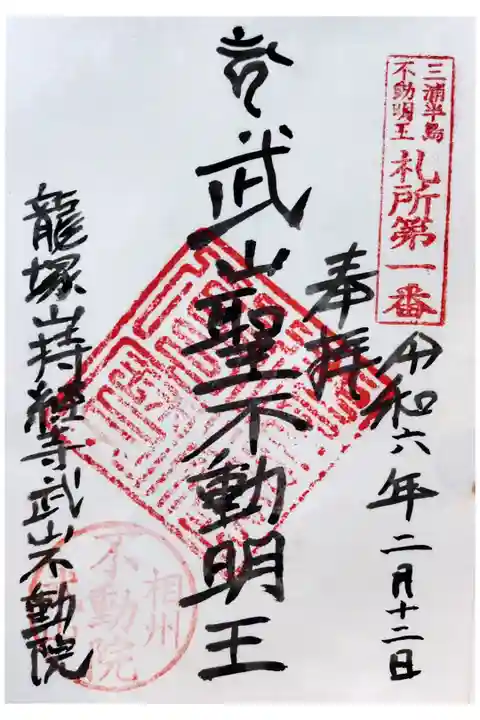 三浦半島
不動明王
札所第一番
奉拝
令和六年二月十二日
武山聖不動明王
龍塚山持経寺武山不動院
相州
不動院